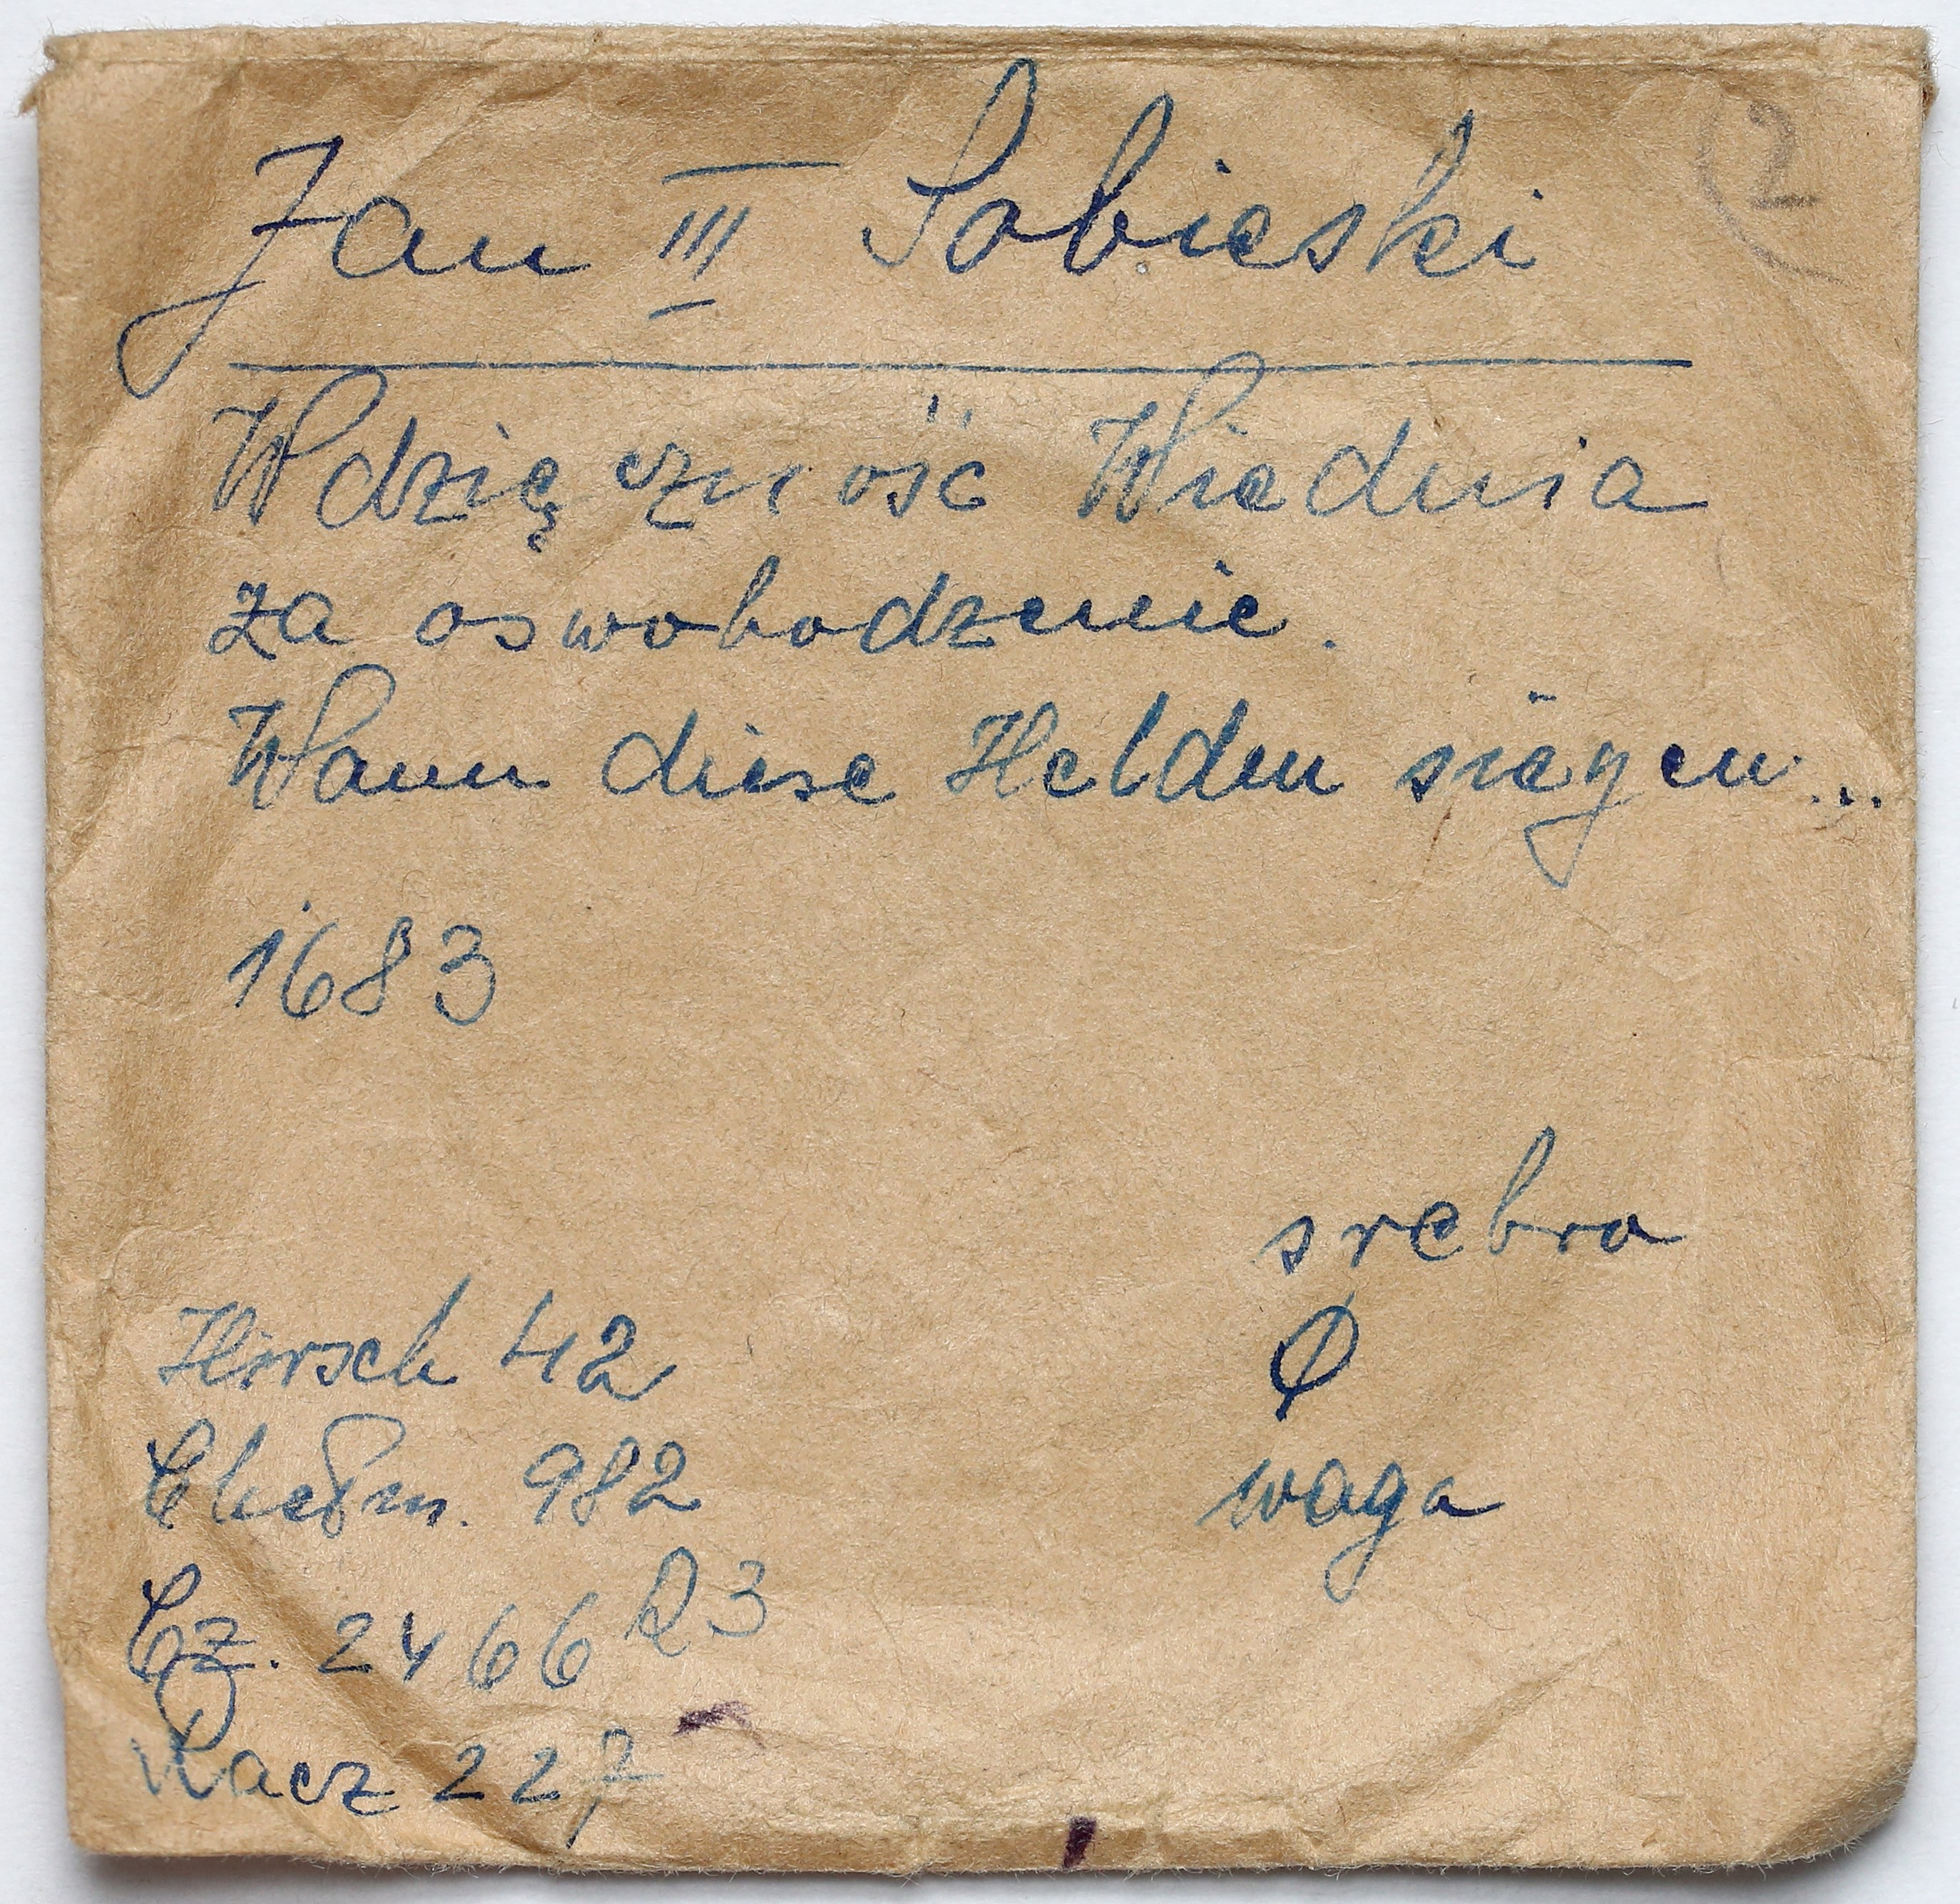 2
Jan III Sobieski
Wdzięczność Wiednia
za oswobodzenie.
Wann diese Helden siegen...
1683
srebro
Ø
waga
Hirsch 42
Chełm. 982
Cz. 2466 R3
Racz 227